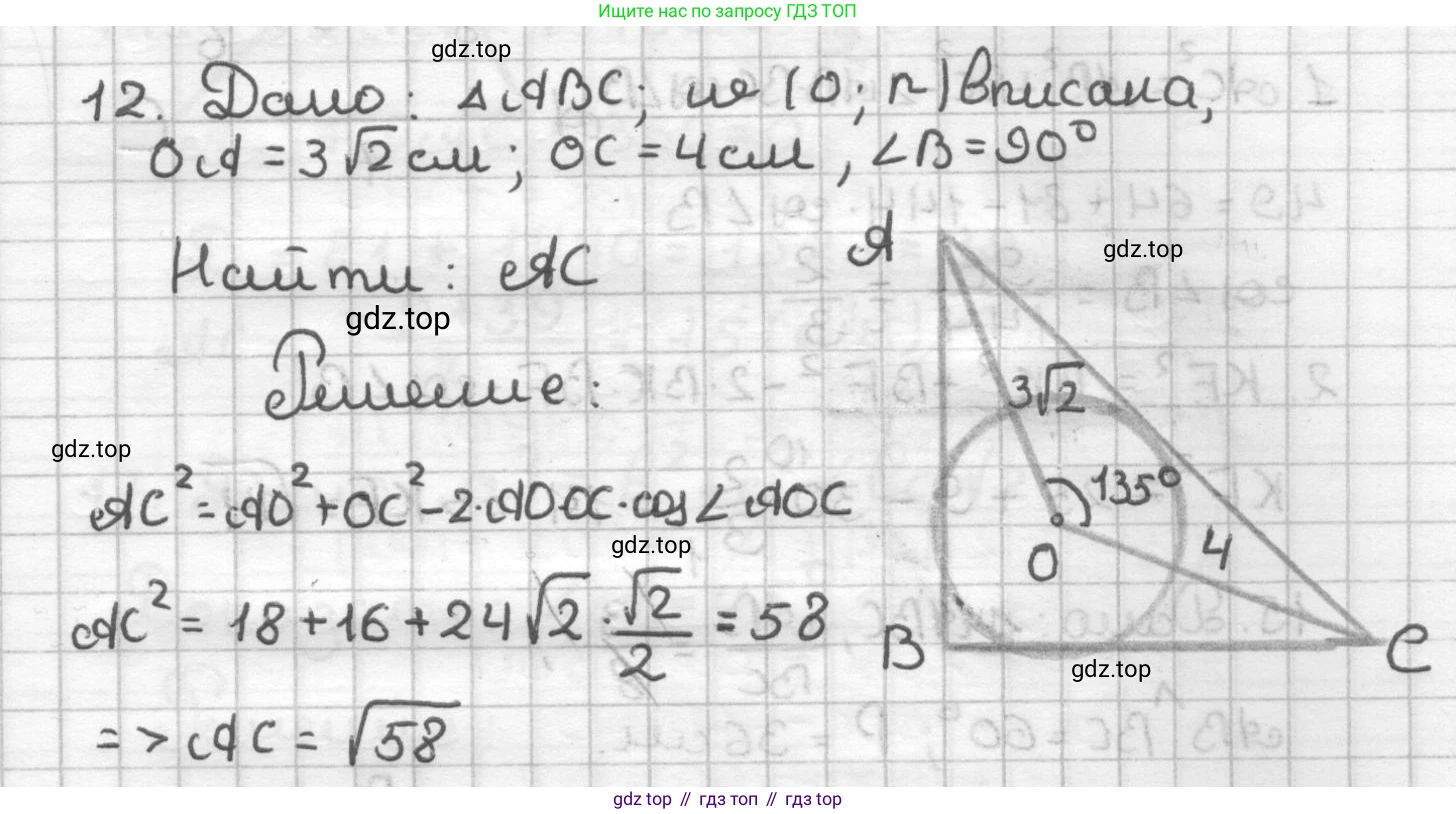 Ищите нас по запросу ГДЗ ТОП
gdz.top
12. Дано: △ABC; ω (O; r) вписана,
OA = 3√2 см; OC = 4 см, ∠B = 90°
Найти: AC
gdz.top
Решение:
gdz.top
AC² = AO² + OC² - 2·AO·OC·cos∠AOC
gdz.top
AC² = 18 + 16 + 24√2 · √2/2 = 58
=> AC = √58
A
gdz.top
3√2
135°
O
4
B
C
gdz.top
gdz top // гдз топ // gdz top